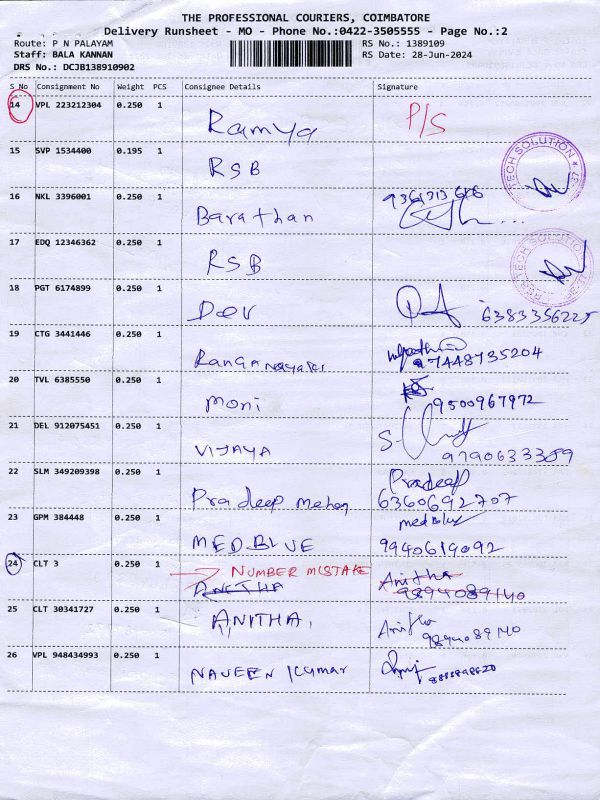 THE PROFESSIONAL COURIERS, COIMBATORE
Delivery Runsheet - MO - Phone No.:0422-3505555 - Page No.:2
Route: P N PALAYAM RS No.: 1389109
Staff: BALA KANNAN RS Date: 28-Jun-2024
DRS No.: DCJB138910902
S No Consignment No Weight PCS Consignee Details Signature
14 VPL 223212304 0.250 1 Ramya P/S
15 SVP 1534400 0.195 1 RSB
TECH SOLUTION
16 NKL 3396001 0.250 1 Barathan
17 EDQ 12346362 0.250 1 RSB
TECH SOLUTION
18 PGT 6174899 0.250 1 Dev 6383356225
19 CTG 3441446 0.250 1 Ranganayaki 97448735204
20 TVL 6385550 0.250 1 moni 9500967972
21 DEL 912075451 0.250 1 VIJAYA 9790633389
22 SLM 349209398 0.250 1 Pradeep Mohan Pradeep
6360692707
23 GPM 384448 0.250 1 MEDBLUE medblue
9940619092
24 CLT 3 0.250 1 NUMBER MISTAKE
ANITHA Anitha
9894089140
25 CLT 30341727 0.250 1 ANITHA, Anitha
9894089140
26 VPL 948434993 0.250 1 NAVEEN KUMAR